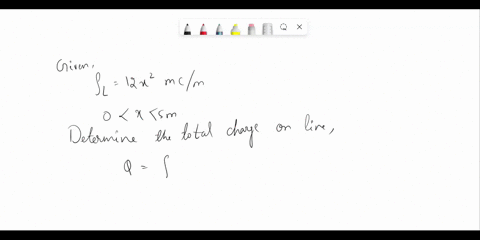 Given,
ρL = 12x² mC/m
0 < x < 5m
Determine the total charge on line,
Q = ∫